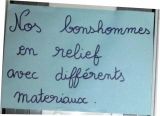 Nos bonshommes
en relief
avec différents
materiaux.